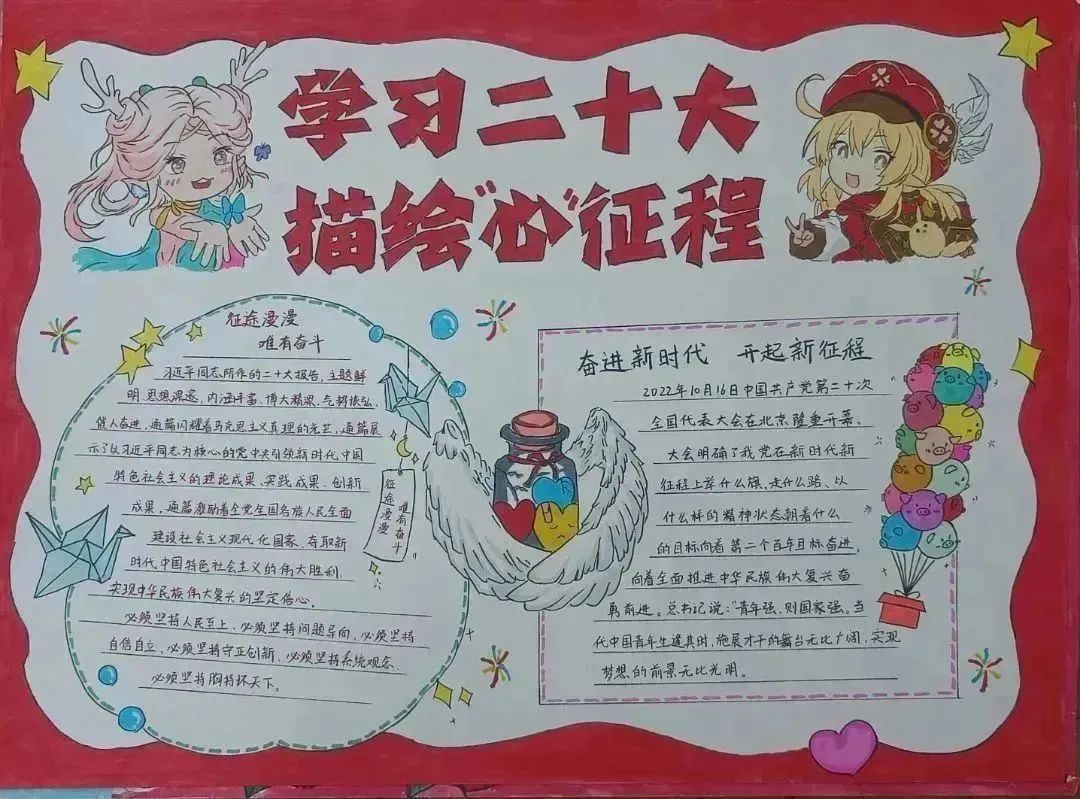 学习二十大
描绘"心"征程
征途漫漫
唯有奋斗
习近平同志所作的二十大报告,主题鲜
明、思想深邃、内涵丰富、博大精深、气势恢弘、
催人奋进,通篇闪耀着马克思主义真理的光芒,通篇展
示了以习近平同志为核心的党中央引领新时代中国
特色社会主义的理论成果、实践成果、创新
成果,通篇激励着全党全国各族人民全面
建设社会主义现代化国家、夺取新
时代中国特色社会主义的伟大胜利、
实现中华民族伟大复兴的坚定信心。
必须坚持人民至上、必须坚持问题导向、必须坚持
自信自立、必须坚持守正创新、必须坚持系统观念、
必须坚持胸怀天下。
征途漫漫
唯有奋斗
奋进新时代 开起新征程
2022年10月16日中国共产党第二十次
全国代表大会在北京隆重开幕,
大会明确了我党在新时代新
征程上举什么旗、走什么路、以
什么样的精神状态朝着什么
的目标向着第二个百年目标奋进,
向着全面推进中华民族伟大复兴奋
勇前进。总书记说:"青年强,则国家强。当
代中国青年生逢其时,施展才干的舞台无比广阔,实现
梦想的前景无比光明。